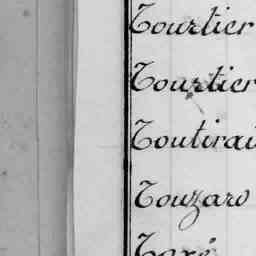 Tourtier
Tourtier
Toutirai
Touzard
Taxé